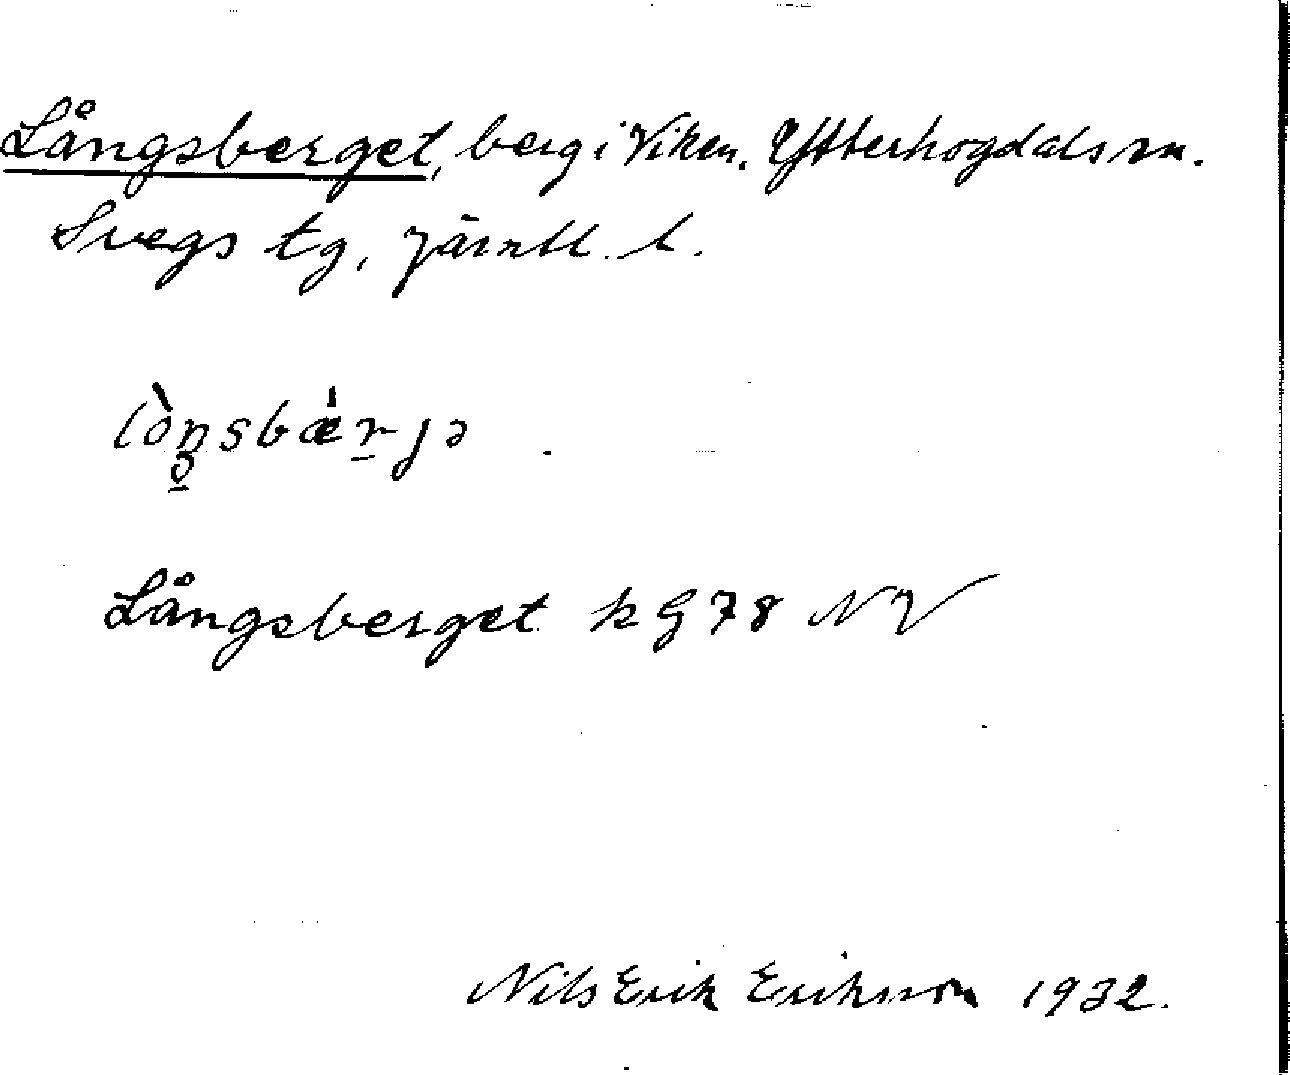 Långsberget, berg i Viken, Ytterhogdals sn.
Svegs tg, Jämtl. l.
Långsberget kG 78 NV
Nils Erik Eriksson 1932.